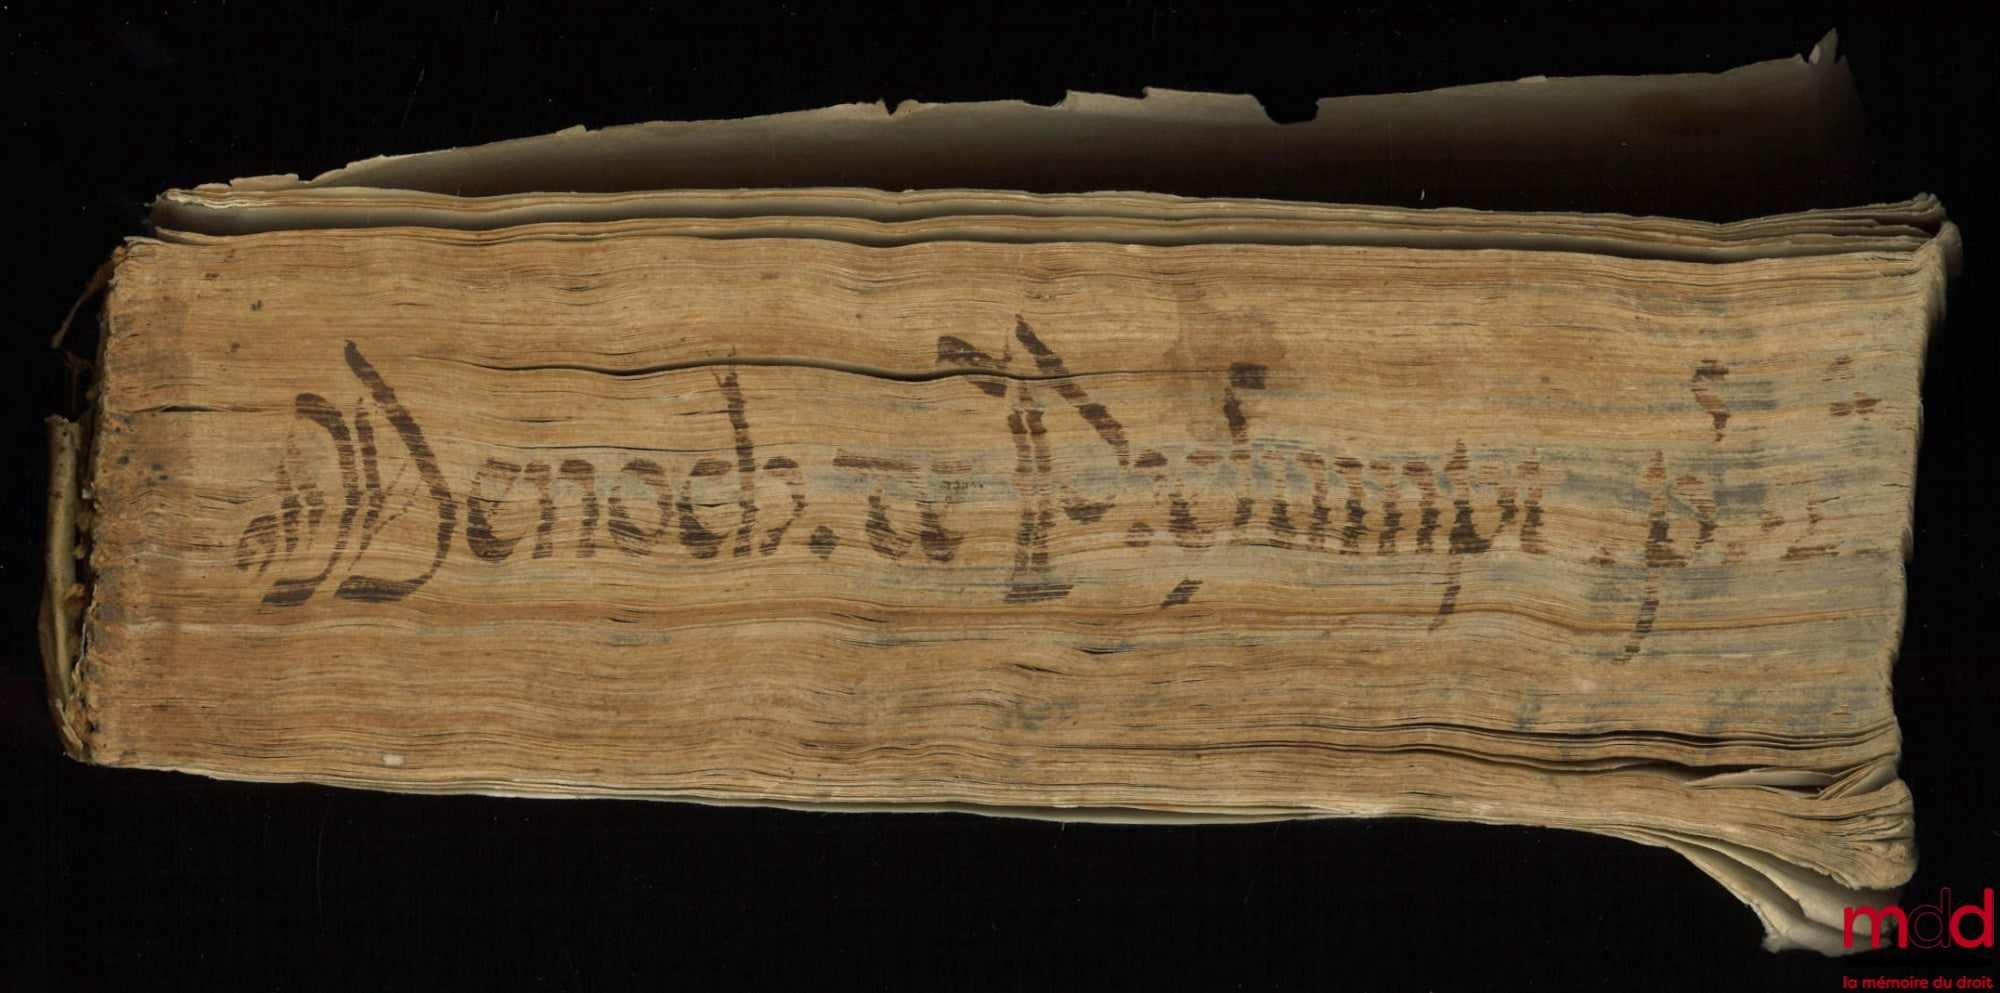 Menoch. de Præsumpt. p.
mdd
la mémoire du droit